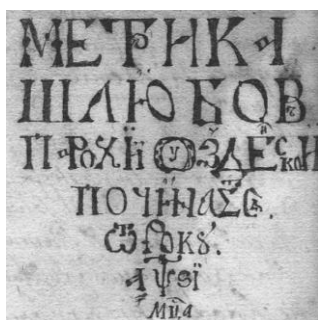 МЕТРИКИ
ШЛЮБОВ
ПАРОХЇИ ОУЗДЕЙСКОИ
ПОЧИНАЕТСѦ.
Ѿ РОКꙋ.
Мц҃а